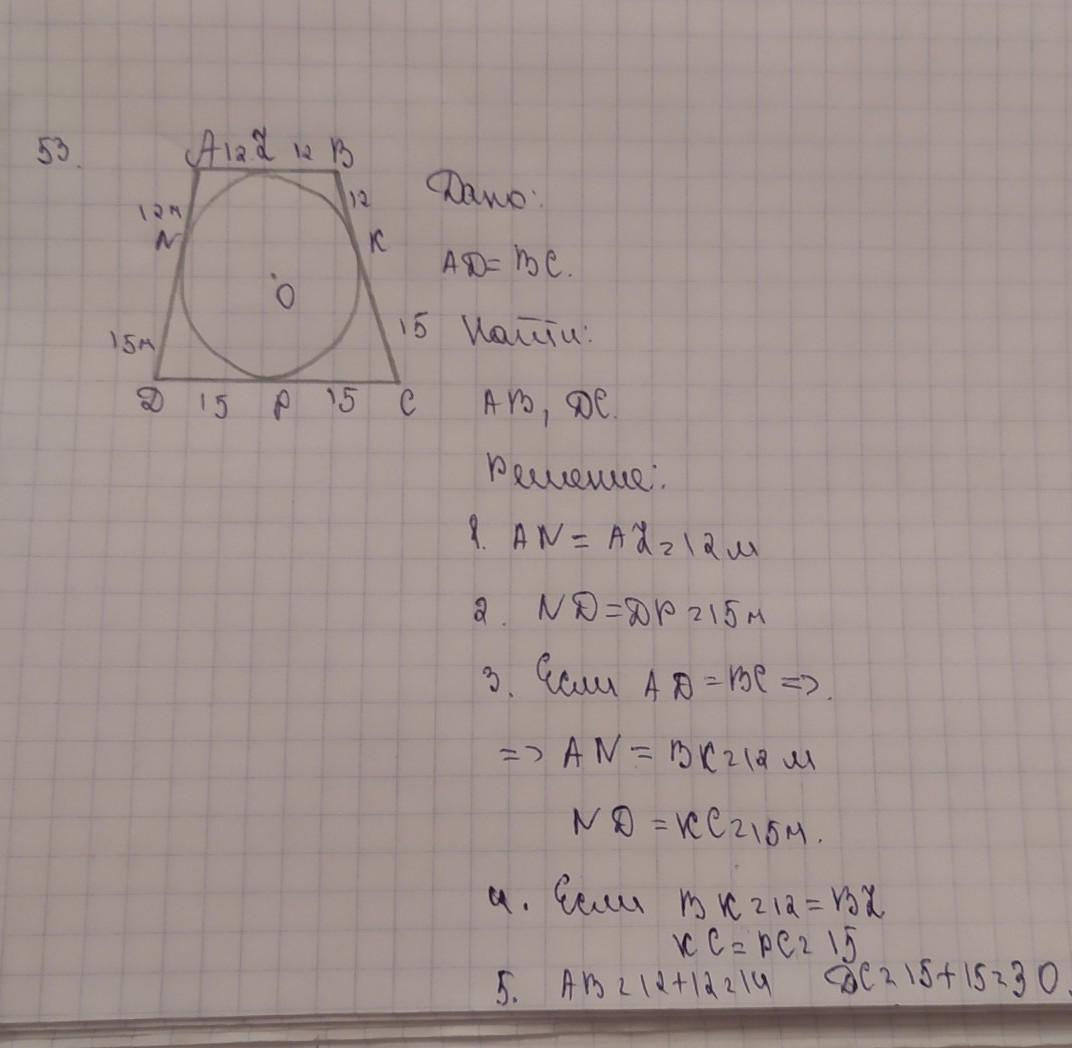 53.
A 12 Z 12 B
12м 12
N K
O
15м 15
D 15 P 15 C
Дано:
AD = BC.
Найти:
AB, DC.
Решение:
1. AN = AZ = 12 м
2. ND = DP = 15 м
3. Если AD = BC =>.
=> AN = BK = 12 м
ND = KC = 15 м.
4. Если BK = 12 = BZ
KC = PC = 15
5. AB = 12 + 12 = 14 DC = 15 + 15 = 30.